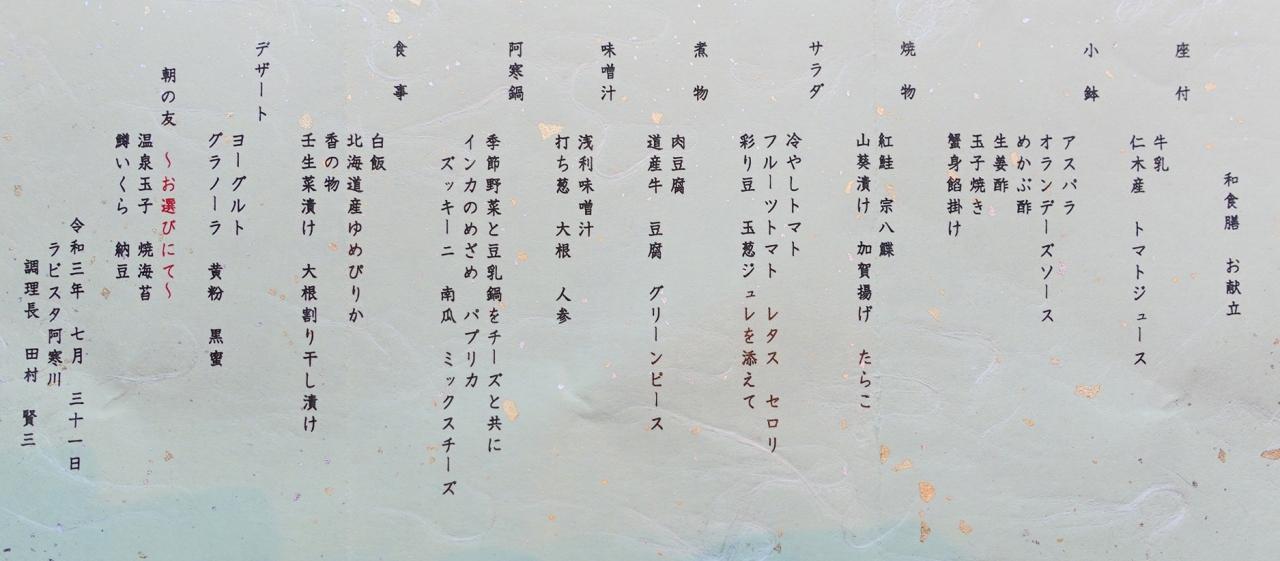 和食膳　お献立
座付
牛乳
仁木産　トマトジュース
小鉢
アスパラ
オランデーズソース
めかぶ酢
生姜酢
玉子焼き
蟹身餡掛け
焼物
紅鮭　宗八鰈
山葵漬け　加賀揚げ　たらこ
サラダ
冷やしトマト
フルーツトマト　レタス　セロリ
彩り豆　玉葱ジュレを添えて
煮物
肉豆腐
道産牛　豆腐　グリーンピース
味噌汁
浅利味噌汁
打ち葱　大根　人参
阿寒鍋
季節野菜と豆乳鍋をチーズと共に
インカのめざめ　パプリカ
ズッキーニ　南瓜　ミックスチーズ
食事
白飯
北海道産ゆめぴりか
香の物
壬生菜漬け　大根割り干し漬け
デザート
ヨーグルト
グラノーラ　黄粉　黒蜜
朝の友　～お選びにて～
温泉玉子　焼海苔
鱒いくら　納豆
令和三年　七月　三十一日
ラビスタ阿寒川
調理長　田村　賢三